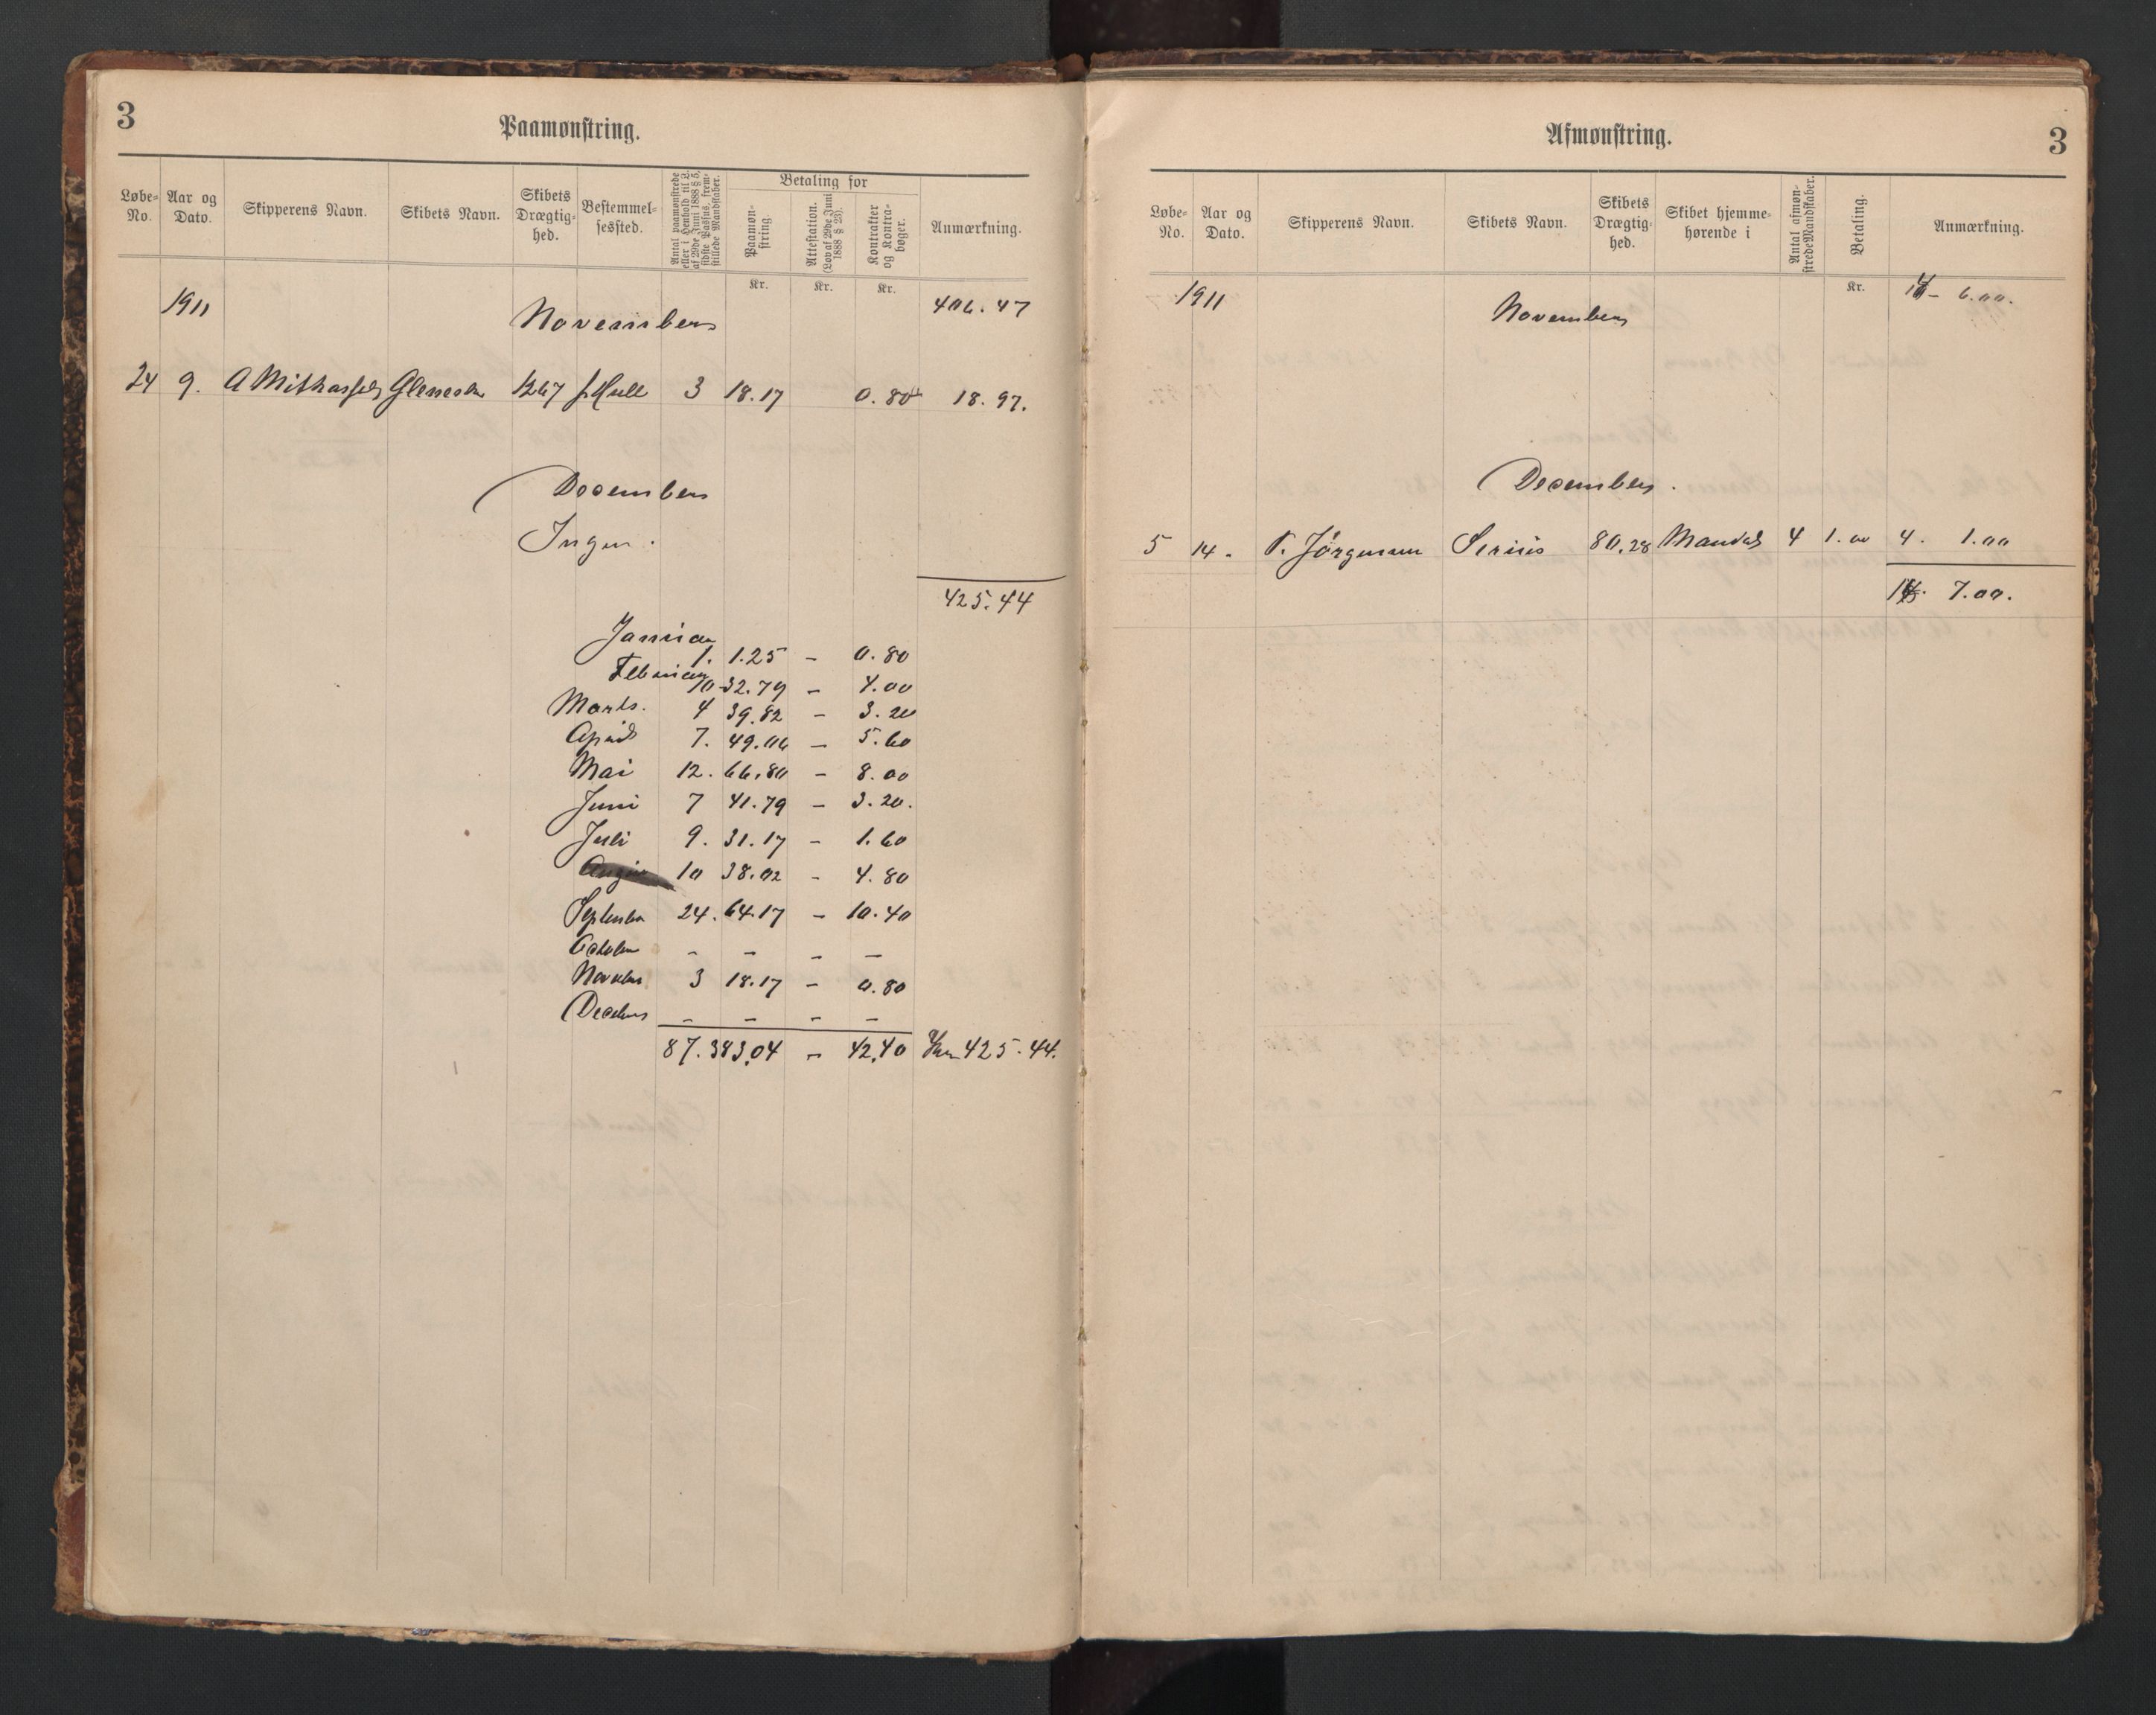 3
Paamønstring.
Løbe-No.
Aar og Dato.
Skipperens Navn.
Skibets Navn.
Skibets Drægtig-hed.
Bestemmel-sessted.
Antal paamønstrede eller i Henhold til L. af 29de Juni 1888 § 5, sidste Passus, frem-stillede Mandskaber.
Betaling for
Paamøn-string.
Attestation. (Lov af 29de Juni 1888 § 23).
Kontrakter og Kontra-bøger.
Anmærkning.
Kr. Kr. Kr.
1911 November 406.47
24 9. A Glenesk 1267 Hull 3 18.17 0.80 18.97.
December
Ingen.
425.44
Januar 1. 1.25 – 0.80
Februar 10 32.79 – 4.00
Marts. 4 39.82 – 3.20
April 7. 49.06 – 5.60
Mai 12. 66.80 – 8.00
Juni 7 41.79 – 3.20.
Juli 9. 31.17 – 1.60
August 10 38.02 – 4.80
September 24. 64.17 – 10.40
October – – – –
November 3 18.17 – 0.80
December – – – –
87. 383.04 – 42.40 425.44.
3
Afmønstring.
Løbe-No.
Aar og Dato.
Skipperens Navn.
Skibets Navn.
Skibets Drægtig-hed.
Skibet hjemme-hørende i
Antal afmøn-strede Mandskaber.
Betaling.
Anmærkning.
Kr.
1911 November 6.00.
December.
5 14. T. Jörgensen Sirius 80,28 Mandal 4 1.00 4. 1.00
7.00.